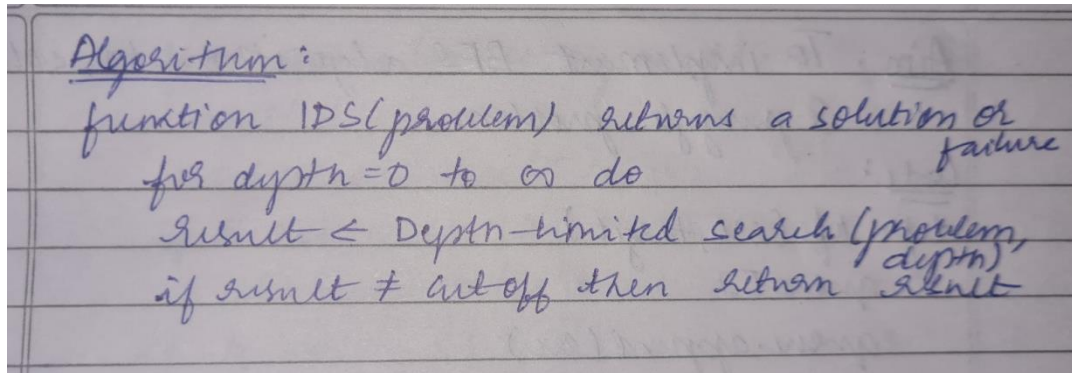 Algorithm:
function IDS(problem) returns a solution or
failure
for depth = 0 to ∞ do
result ← Depth-limited search (problem,
depth)
if result ≠ cutoff then return result